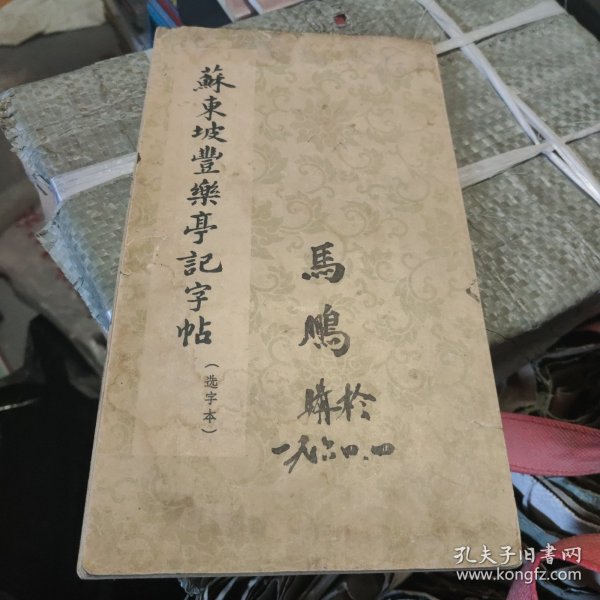 蘇東坡豐樂亭記字帖
（选字本）
馬鵬
購於
一九六四.四
孔夫子旧书网
www.kongfz.com